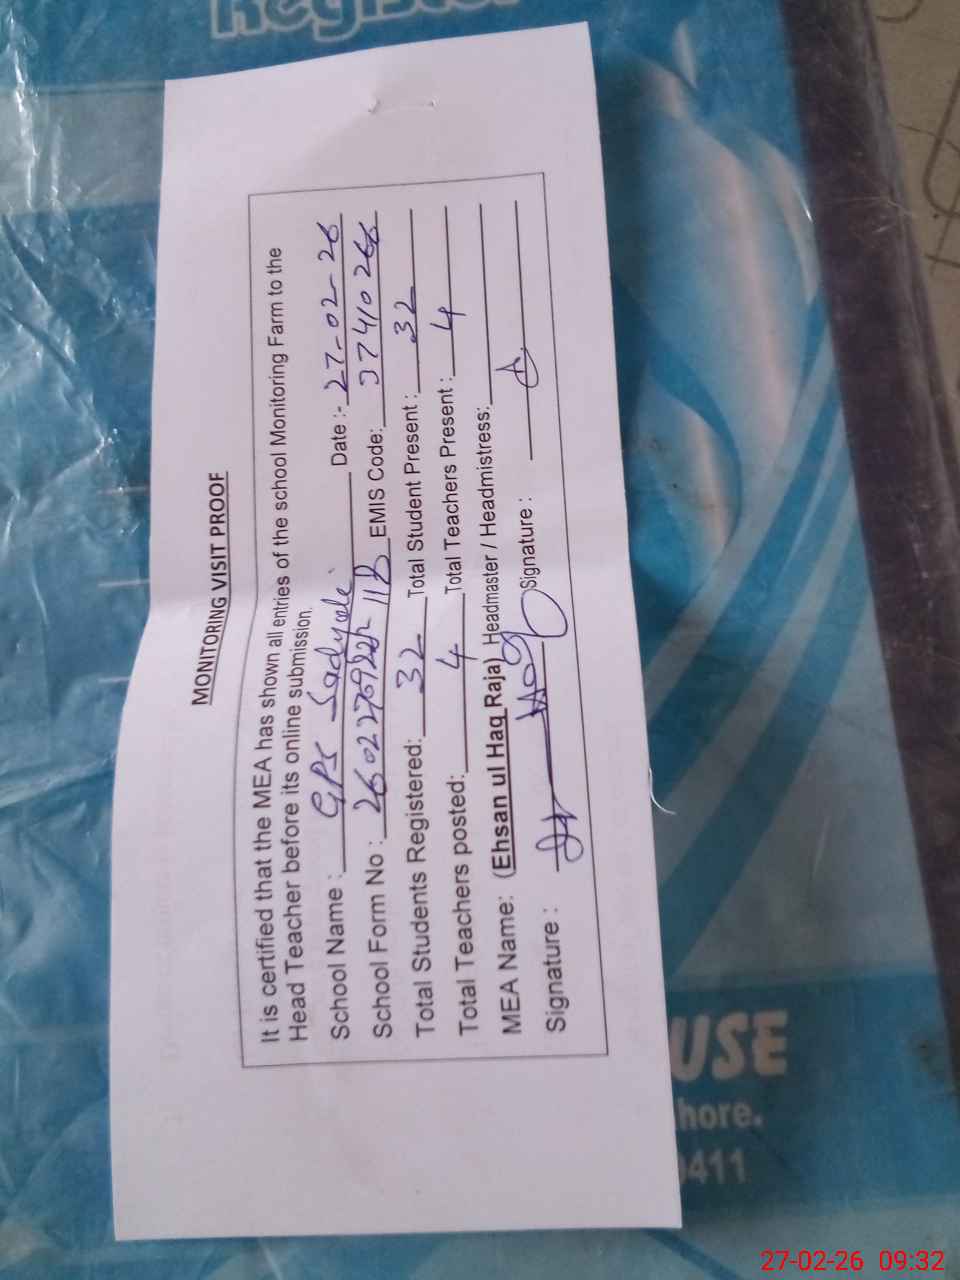 Register
MONITORING VISIT PROOF
It is certified that the MEA has shown all entries of the school Monitoring Farm to the
Head Teacher before its online submission.
School Name : GPS Sadyole Date :- 27-02-26
School Form No : EMIS Code: 37410266
Total Students Registered: 32 Total Student Present : 32
Total Teachers posted: 4 Total Teachers Present : 4
MEA Name: (Ehsan ul Haq Raja) Headmaster / Headmistress:
Signature : Signature :
USE
hore.
0411
27-02-26 09:32